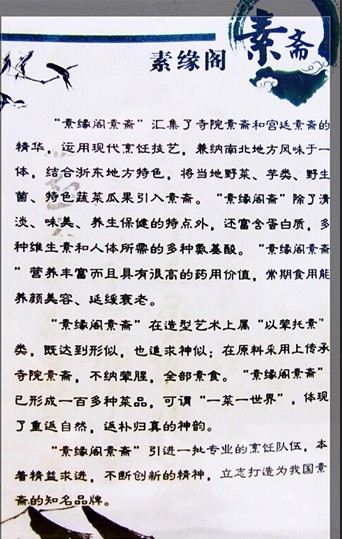 素斋
素缘阁
“素缘阁素斋”汇集了寺院素斋和宫廷素斋的
精华，运用现代烹饪技艺，兼纳南北地方风味于一
体，结合浙东地方特色，将当地野菜、芋类、野生
菌、特色蔬菜瓜果引入素斋。“素缘阁素斋”除了清
淡、味美、养生保健的特点外，还富含蛋白质，多
种维生素和人体所需的多种氨基酸。“素缘阁素斋
”营养丰富而且具有很高的药用价值，常期食用能
养颜美容、延缓衰老。
“素缘阁素斋”在造型艺术上属“以荤托素”
类，既达到形似，也追求神似；在原料采用上传承
寺院素斋，不纳荤腥，全部素食。“素缘阁素斋”
已形成一百多种菜品，可谓“一菜一世界”，体现
了重返自然，返朴归真的神韵。
“素缘阁素斋”引进一批专业的烹饪队伍，本
着精益求进，不断创新的精神，立志打造为我国素
斋的知名品牌。